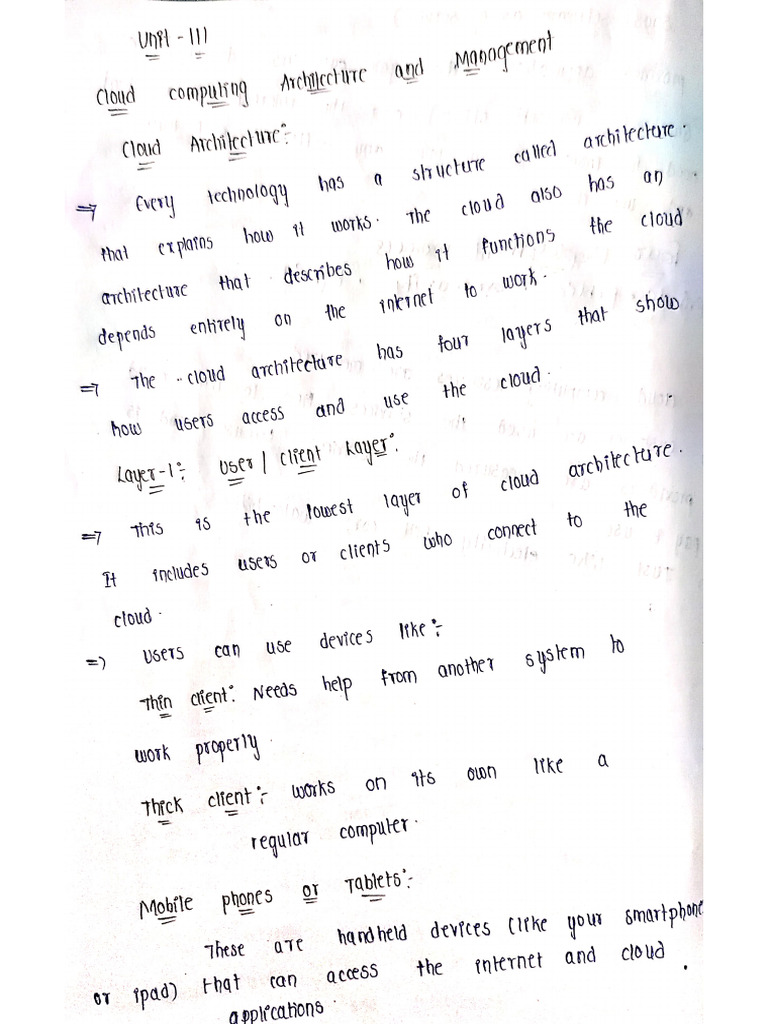 Unit - III
Cloud computing Architecture and Management
Cloud Architecture:-
=> Every technology has a structure called architecture.
that explains how it works. The cloud also has an
architecture that describes how it functions the cloud
depends entirely on the internet to work.
=> The cloud architecture has four layers that show
how users access and use the cloud.
Layer-1:- User / Client Layer:
=> This is the lowest layer of cloud architecture.
It includes users or clients who connect to the
cloud.
=> Users can use devices like:-
Thin client: Needs help from another system to
work properly.
Thick client:- works on its own like a
regular computer.
Mobile phones or Tablets:-
These are handheld devices (like your smartphone
or ipad) that can access the internet and cloud
applications.